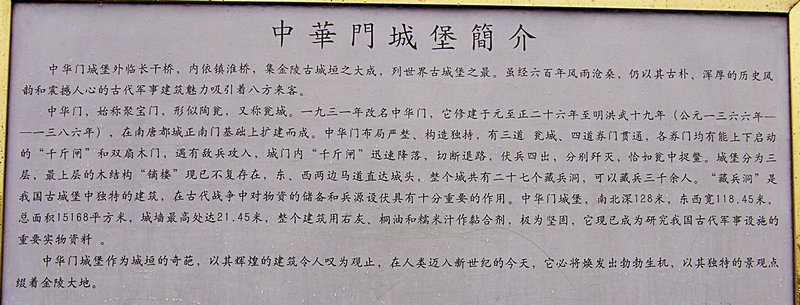 中華門城堡簡介
中华门城堡外临长干桥，内依镇淮桥，集金陵古城垣之大成，列世界古城堡之最。虽经六百年风雨沧桑，仍以其古朴、浑厚的历史风
韵和震撼人心的古代军事建筑魅力吸引着八方来客。
中华门，始称聚宝门，形似陶瓮，又称瓮城。一九三一年改名中华门，它修建于元至正二十六年至明洪武十九年（公元一三六六年—
—一三八六年），在南唐都城正南门基础上扩建而成。中华门布局严整、构造独持，有三道 瓮城、四道券门贯通，各券门均有能上下启动
的“千斤闸”和双扇木门，遇有敌兵攻入，城门内“千斤闸”迅速降落，切断退路，伏兵四出，分别歼灭，恰如瓮中捉鳖。城堡分为三
层，最上层的木结构“镝楼”现已不复存在，东、西两边马道直达城头，整个城共有二十七个藏兵洞，可以藏兵三千余人。“藏兵洞”是
我国古城堡中独特的建筑，在古代战争中对物资的储备和兵源设伏具有十分重要的作用。中华门城堡，南北深128米，东西宽118.45米，
总面积15168平方米，城墙最高处达21.45米，整个建筑用石灰、桐油和糯米汁作黏合剂，极为坚固，它现已成为研究我国古代军事设施的
重要实物资料 。
中华门城堡作为城垣的奇葩，以其辉煌的建筑令人叹为观止，在人类迈入新世纪的今天，它必将焕发出勃勃生机，以其独特的景观点
缀着金陵大地。